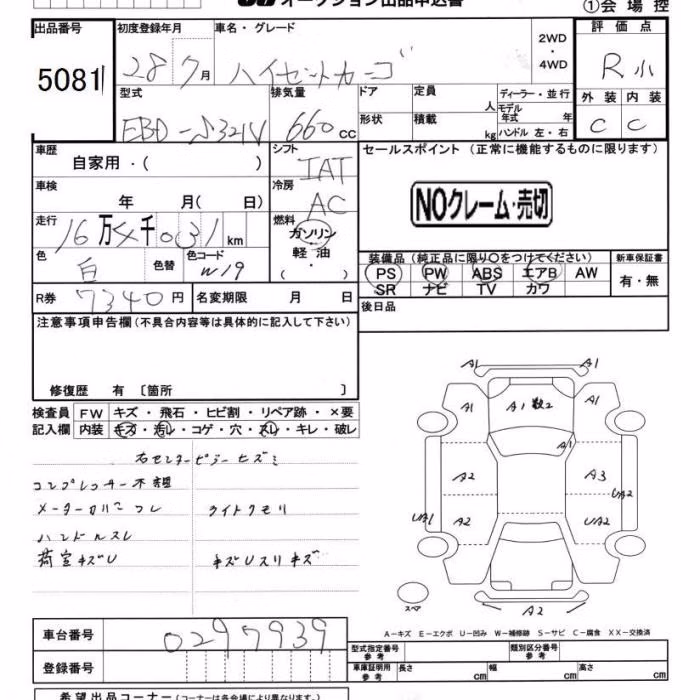 オークション出品申込書
①会場控
出品番号
5081
初度登録年月
28 7月
車名・グレード
ハイゼットカーゴ
2WD
・
4WD
評価点
R小
外装 内装
C C
型式
EBD-S321V
排気量
660cc
ドア
定員
人
形状
積載
kg
ディーラー・並行
モデル年式 年
ハンドル 左・右
車歴
自家用・( )
シフト
IAT
車検
年 月( 日)
冷房
AC
走行
16万4千031km
燃料
ガソリン・
軽油・
( ・ )
色
白
色替
色コード
W19
R券
7340円
名変期限 月 日
セールスポイント(正常に機能するものに限ります)
NOクレーム・売切
装備品(純正品に限り○をつけてください)
新車保証書
PS PW ABS エアB AW
SR ナビ TV カワ
有・無
後日品
注意事項申告欄(不具合内容等は具体的に記入して下さい)
修復歴 有〔箇所 〕
検査員 FW キズ・飛石・ヒビ割・リペア跡・×要
記入欄 内装 キズ・汚レ・コゲ・穴・スレ・キレ・破レ
右センターピラーヒズミ
コンプレッサー不調
メーターカバーコワレ
ライトクモリ
ハンドルスレ
荷室キズU
キズUスリキズ
A1
A1
A1
A1数2
A1
A1
A2
A3
UA2
UA1
A2
UA2
スペア
A2
A-キズ E-エクボ U-凹み W-補修跡 S-サビ C-腐食 XX-交換済
車台番号
0297939
登録番号
型式指定番号 参考
類別区分番号 参考
車庫証明用 参考
長さ cm
幅 cm
高さ cm
希望出品コーナー(コーナーは各会場により異なります。)